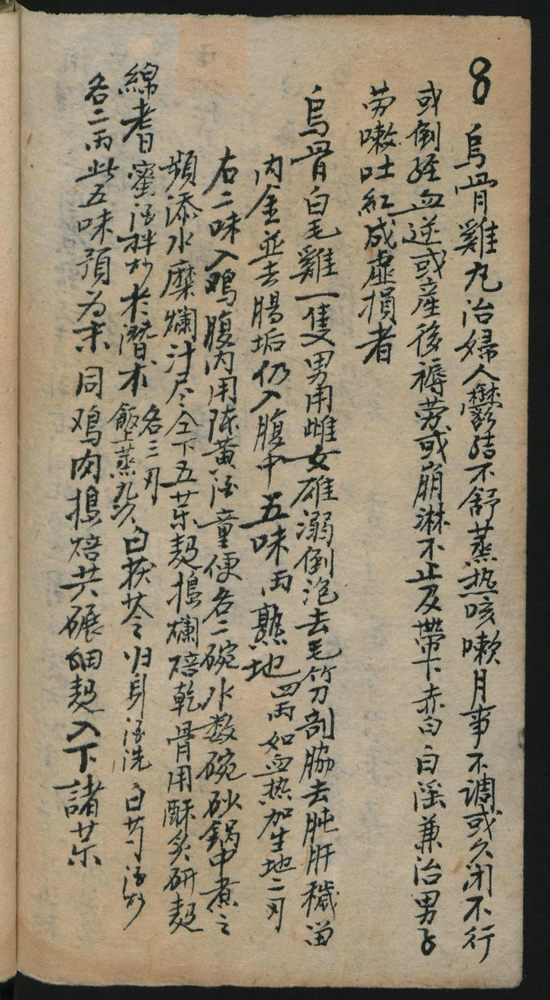 8 烏骨雞丸治婦人鬱結不舒蒸热咳嗽月事不调或久闭不行
或倒经血逆或産後褥劳或崩淋不止及帶下赤白白淫兼治男子
劳嗽吐紅成虛損者
烏骨白毛雞一隻男用雌女雄溺倒泡去毛竹刀剖脇去肫肝穢留
内金並去腸垢仍入腹中五味一两熟地四两如血热加生地二刃
右二味入鸡腹内用陈黄酒童便各二碗水数碗砂鍋中煮之
頻添水糜爛汁尽仝下五苿麪搗爛焙乾骨用酥炙研麪
綿耆蜜酒拌炒於潛术各三刃飯上蒸九次白茯苓归身酒洗白芍酒炒
各二两此五味預为末同鸡肉搗焙共碾細麪入下諸苿